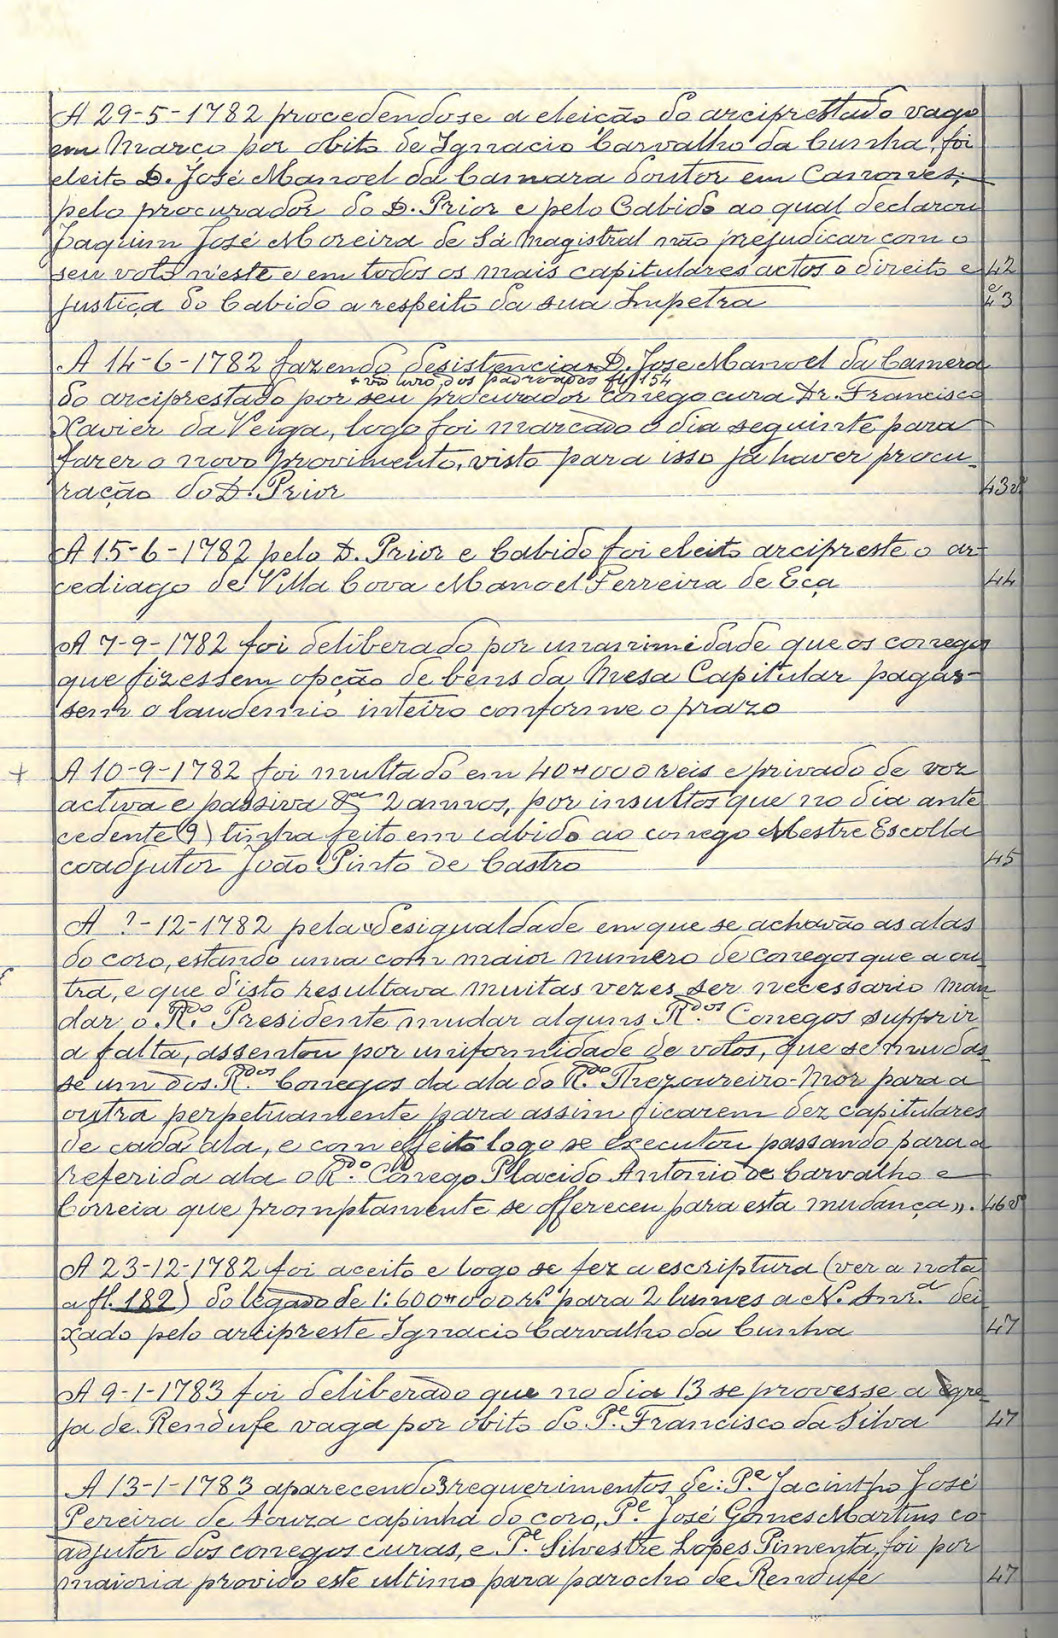 A 29-5-1782 procedendose a eleição do arciprestado vago
em Março por obito de Ignacio Carvalho da Cunha, foi
eleito D. José Manoel da Camara doutor em Canones,
pelo procurador do D. Prior e pelo Cabido ao qual declarou
Joaquim José Moreira de Sá Magistral não prejudicar com o
seu voto n'este e em todos os mais capitulares actos o direito e 42
justiça do Cabido a respeito da sua Impetra e 43
A 14-6-1782 fazendo desistencia D. Jose Manoel da Camera
+ vo livro dos padroados fl 154
do arciprestado por seu procurador conego cura Dr. Francisco
Xavier da Veiga, logo foi marcado o dia seguinte para
fazer o novo provimento, visto para isso já haver procu-
ração do D. Prior 43v
A 15-6-1782 pelo D. Prior e Cabido foi eleito arcipreste o ar-
cediago de Villa Cova Manoel Ferreira de Eça 44
A 7-9-1782 foi deliberado por unanimidade que os conegos
que fizessem opção de bens da Mesa Capitular pagas-
sem o laudemio inteiro conforme o prazo
+ A 10-9-1782 foi multado em 40$000 reis e privado de voz
activa e passiva 2 annos, por insultos que no dia ante
cedente (9) tinha feito em cabido ao conego Mestre Escolla
coadjutor João Pinto de Castro 45
A ?-12-1782 pela "desigualdade em que se achavão as alas
do coro, estando uma com maior numero de conegos que a ou
tra, e que d'isto resultava muitas vezes ser necessario man
dar o R.do Presidente mudar alguns R.dos Conegos supprir
a falta, assentou por uniformidade de votos, que se mudas
se um dos R.dos Conegos da ala do R.do Thezoureiro-Mor para a
outra perpetuamente para assim ficarem dez capitulares
de cada ala, e com effeito logo se executou passando para a
referida ala o R.do Conego Placido Antonio de Carvalho e
Correia que promptamente se offereceu para esta mudança". 46v
A 23-12-1782 foi aceito e logo se fez a escriptura (ver a nota
a fl. 182) do legado de 1:600$000 rs. para 2 lumes a N. Snr.a dei
xado pelo arcipreste Ignacio Carvalho da Cunha 47
A 9-1-1783 foi deliberado que no dia 13 se provesse a egre
ja de Rendufe vaga por obito do P.e Francisco da Silva 47
A 13-1-1783 aparecendo 3 requerimentos de: P.e Jacintho José
Pereira de Souza capinha do coro, P.e José Gomes Martins co
adjutor dos conegos curas, e P.e Silvestre Lopes Pimenta, foi por
maioria provido este ultimo para parocho de Rendufe 47